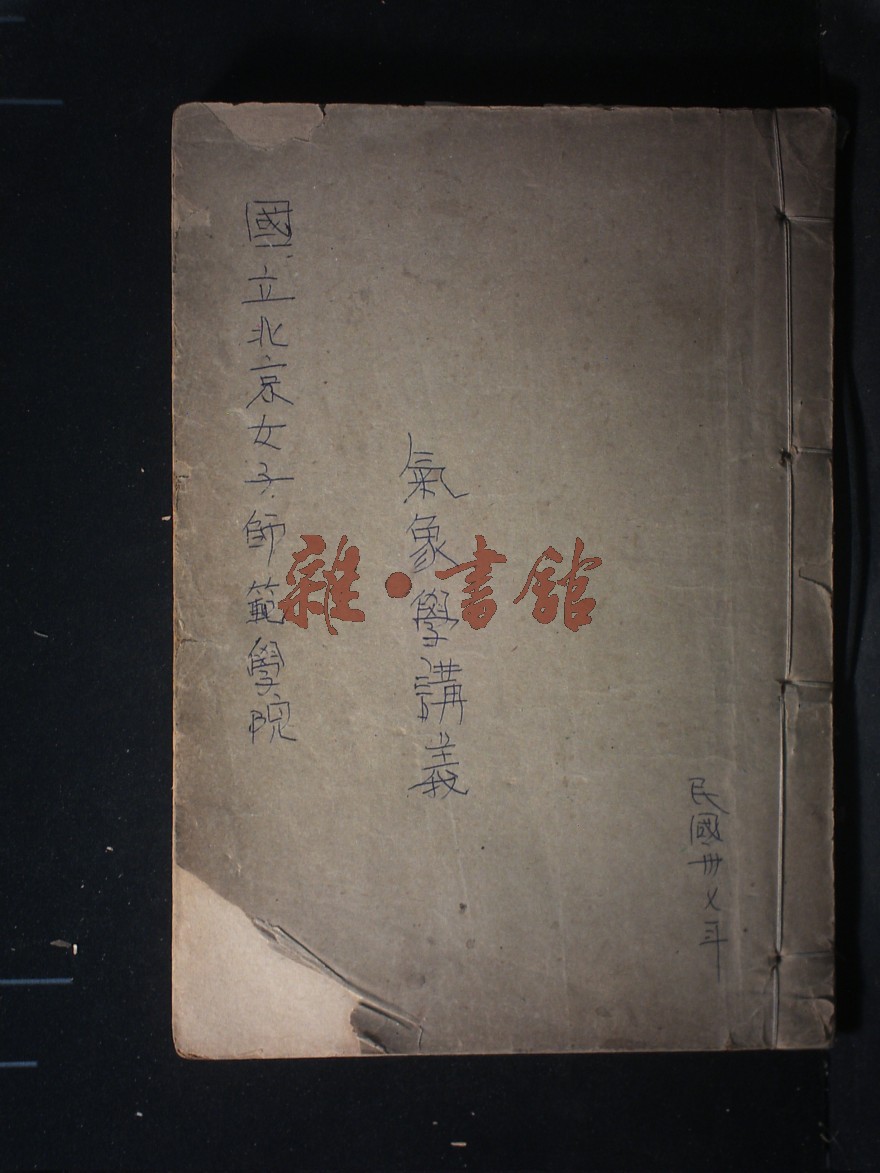 民國卅七年
氣象學講義
國立北京女子師範學院
雜·書舘